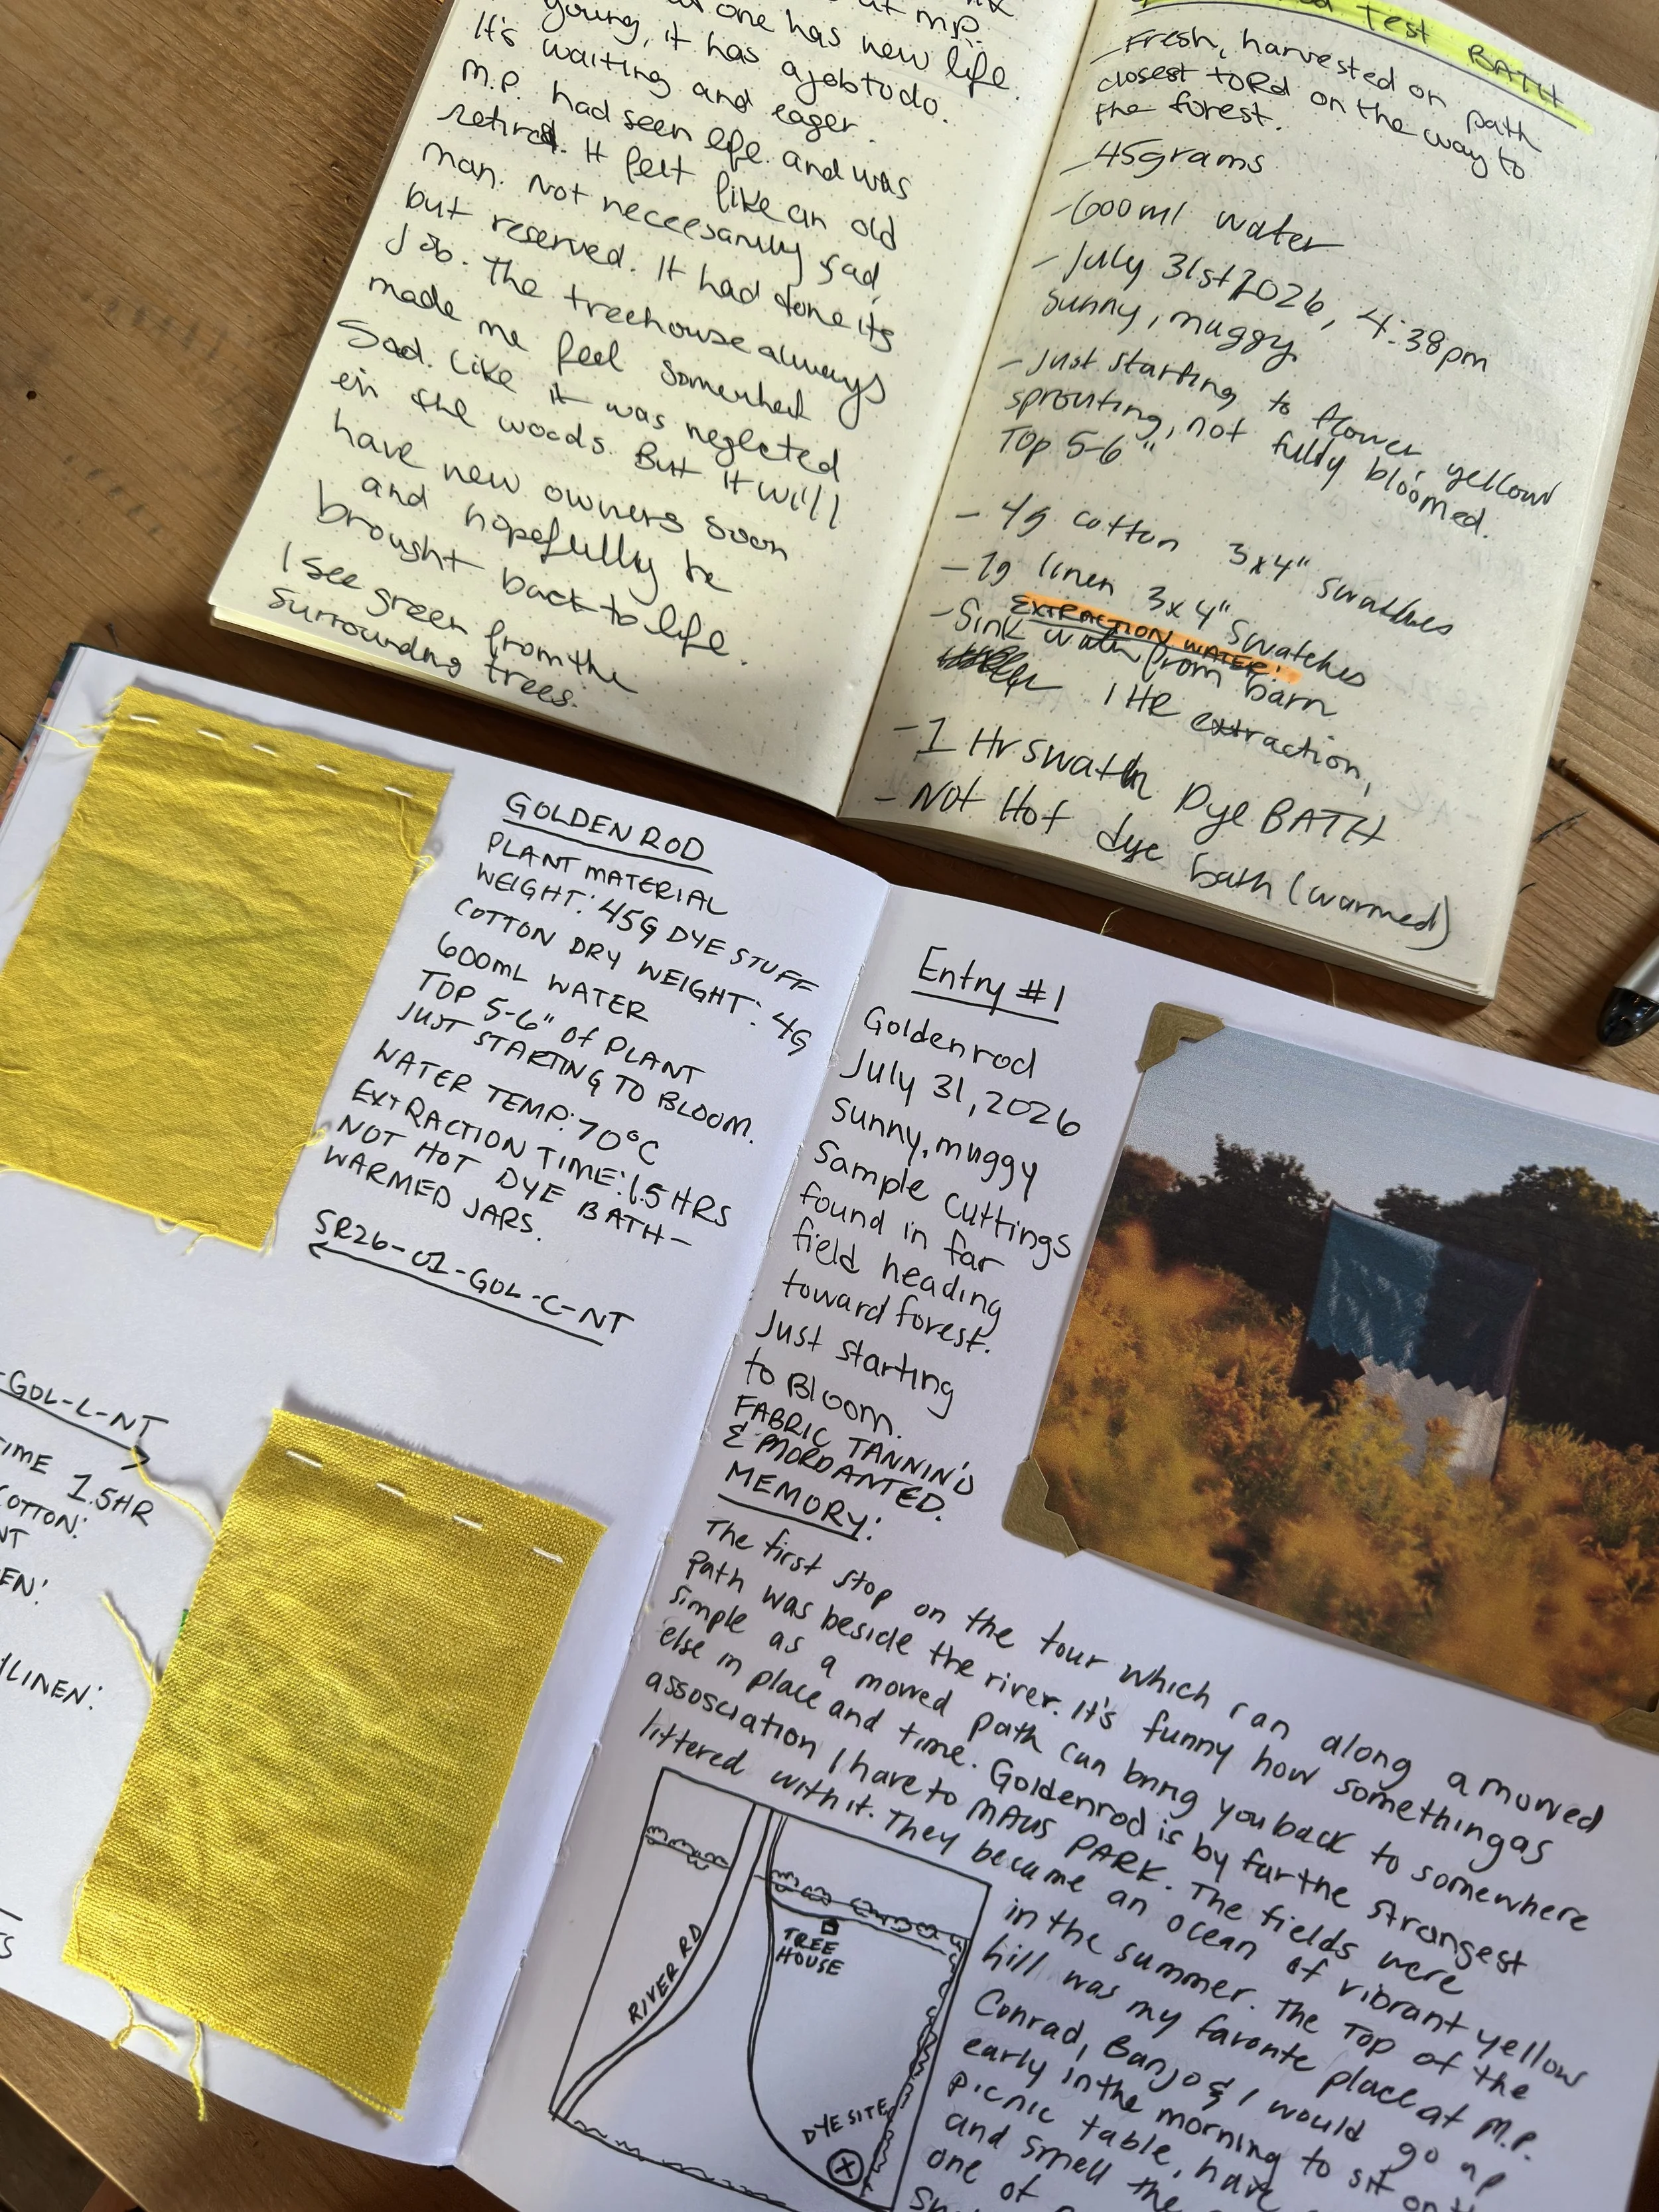 at mp.
one has new life.
young, it has a job to do.
It's waiting and eager.
M.P. had seen life and was
retired. It felt like an old
man. Not neceesarily sad,
but reserved. It had done its
job. The treehouse always
made me feel somewhat
Sad. Like it was neglected
in the woods. But it will
have new owners soon
and hopefully be
brought back to life.
I see green from the
surrounding trees.
Test BATH
- Fresh, harvested on path
closest to Rd on the way to
the forest.
- 45grams
- 600ml water
- July 31st 2026, 4:38pm
sunny, muggy.
- Just starting to flower yellow
sprouting, not fully bloomed.
Top 5-6"
- 4g cotton 3x4" swatches
- 7g linen 3x4" swatches
EXTRACTION WATER:
- Sink water from barn
1 HR extraction,
- 1 Hr swatch Dye BATH
- Not Hot dye bath (warmed)
GOLDENROD
PLANT MATERIAL
WEIGHT: 45G DYE STUFF
COTTON DRY WEIGHT: 4G
600ML WATER
TOP 5-6" of PLANT
JUST STARTING TO BLOOM.
WATER TEMP: 70°C
EXTRACTION TIME: 1.5 HRS
NOT HOT DYE BATH-
WARMED JARS.
SR26-01-GOL-C-NT
-GOL-L-NT
TIME 1.5HR
COTTON:
NT
EN:
/LINEN:
Entry #1
Goldenrod
July 31, 2026
Sunny, muggy
Sample cuttings
found in far
field heading
toward forest.
Just starting
to Bloom.
FABRIC TANNIN'D
& MORDANTED.
MEMORY:
The first stop on the tour which ran along a mowed
path was beside the river. It's funny how something as
simple as a mowed path can bring you back to somewhere
else in place and time. Goldenrod is by far the strongest
assosciation I have to MAUS PARK. The fields were
littered with it. They became an ocean of vibrant yellow
in the summer. The Top of the
hill was my favorite place at M.P.
Conrad, Banjo & I would go up
early in the morning to sit on the
picnic table, have
and smell the
one of
RIVER RD
TREE
HOUSE
DYE SITE